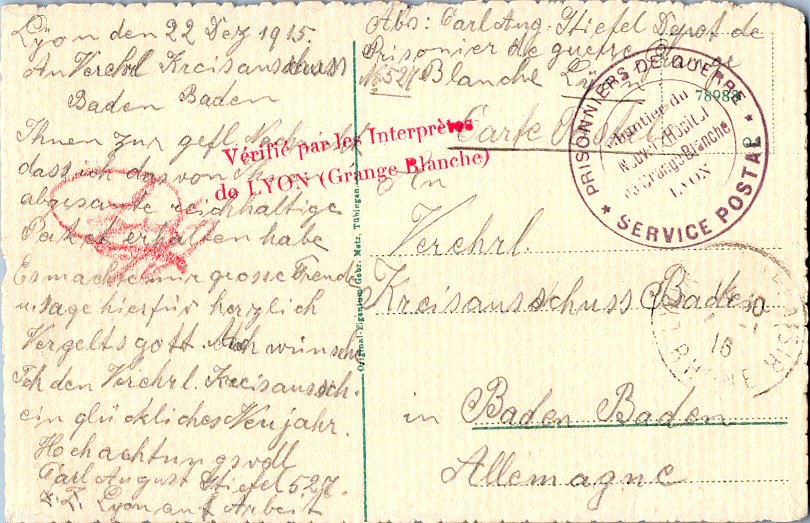 Lyon den 22 Dez 1915.
An Verehrl Kreisausschuss
Baden Baden
Ihnen zur gefl. Nachricht
dass ich das von Ihnen
abgesante reichhaltige
Paket erhalten habe
Es machte mir grosse Freude
u. sage hierfür herzlich
Vergelts gott. Auch wünsche
Ich den Verehrl. Kreisaussch.
ein glückliches Neujahr.
Hochachtungsvoll
Carl August Stiefel 527.
z. Z. Lyon auf Arbeit
Vérifié par les Interprètes
de LYON (Grange Blanche)
Original-Eigentum Gebr. Metz, Tübingen.
Abs: Carl Aug. Stiefel Depot de
Prisonier de guerre Grange
No 527 Blanche Lyon
78983
Carte Postale
PRISONNIERS DE GUERRE
Chantier du
Nouvel Hôpital
de Grange Blanche
LYON
* SERVICE POSTAL *
An
Verehrl.
Kreisausschuss Baden
in Baden Baden
Allemagne
RHONE